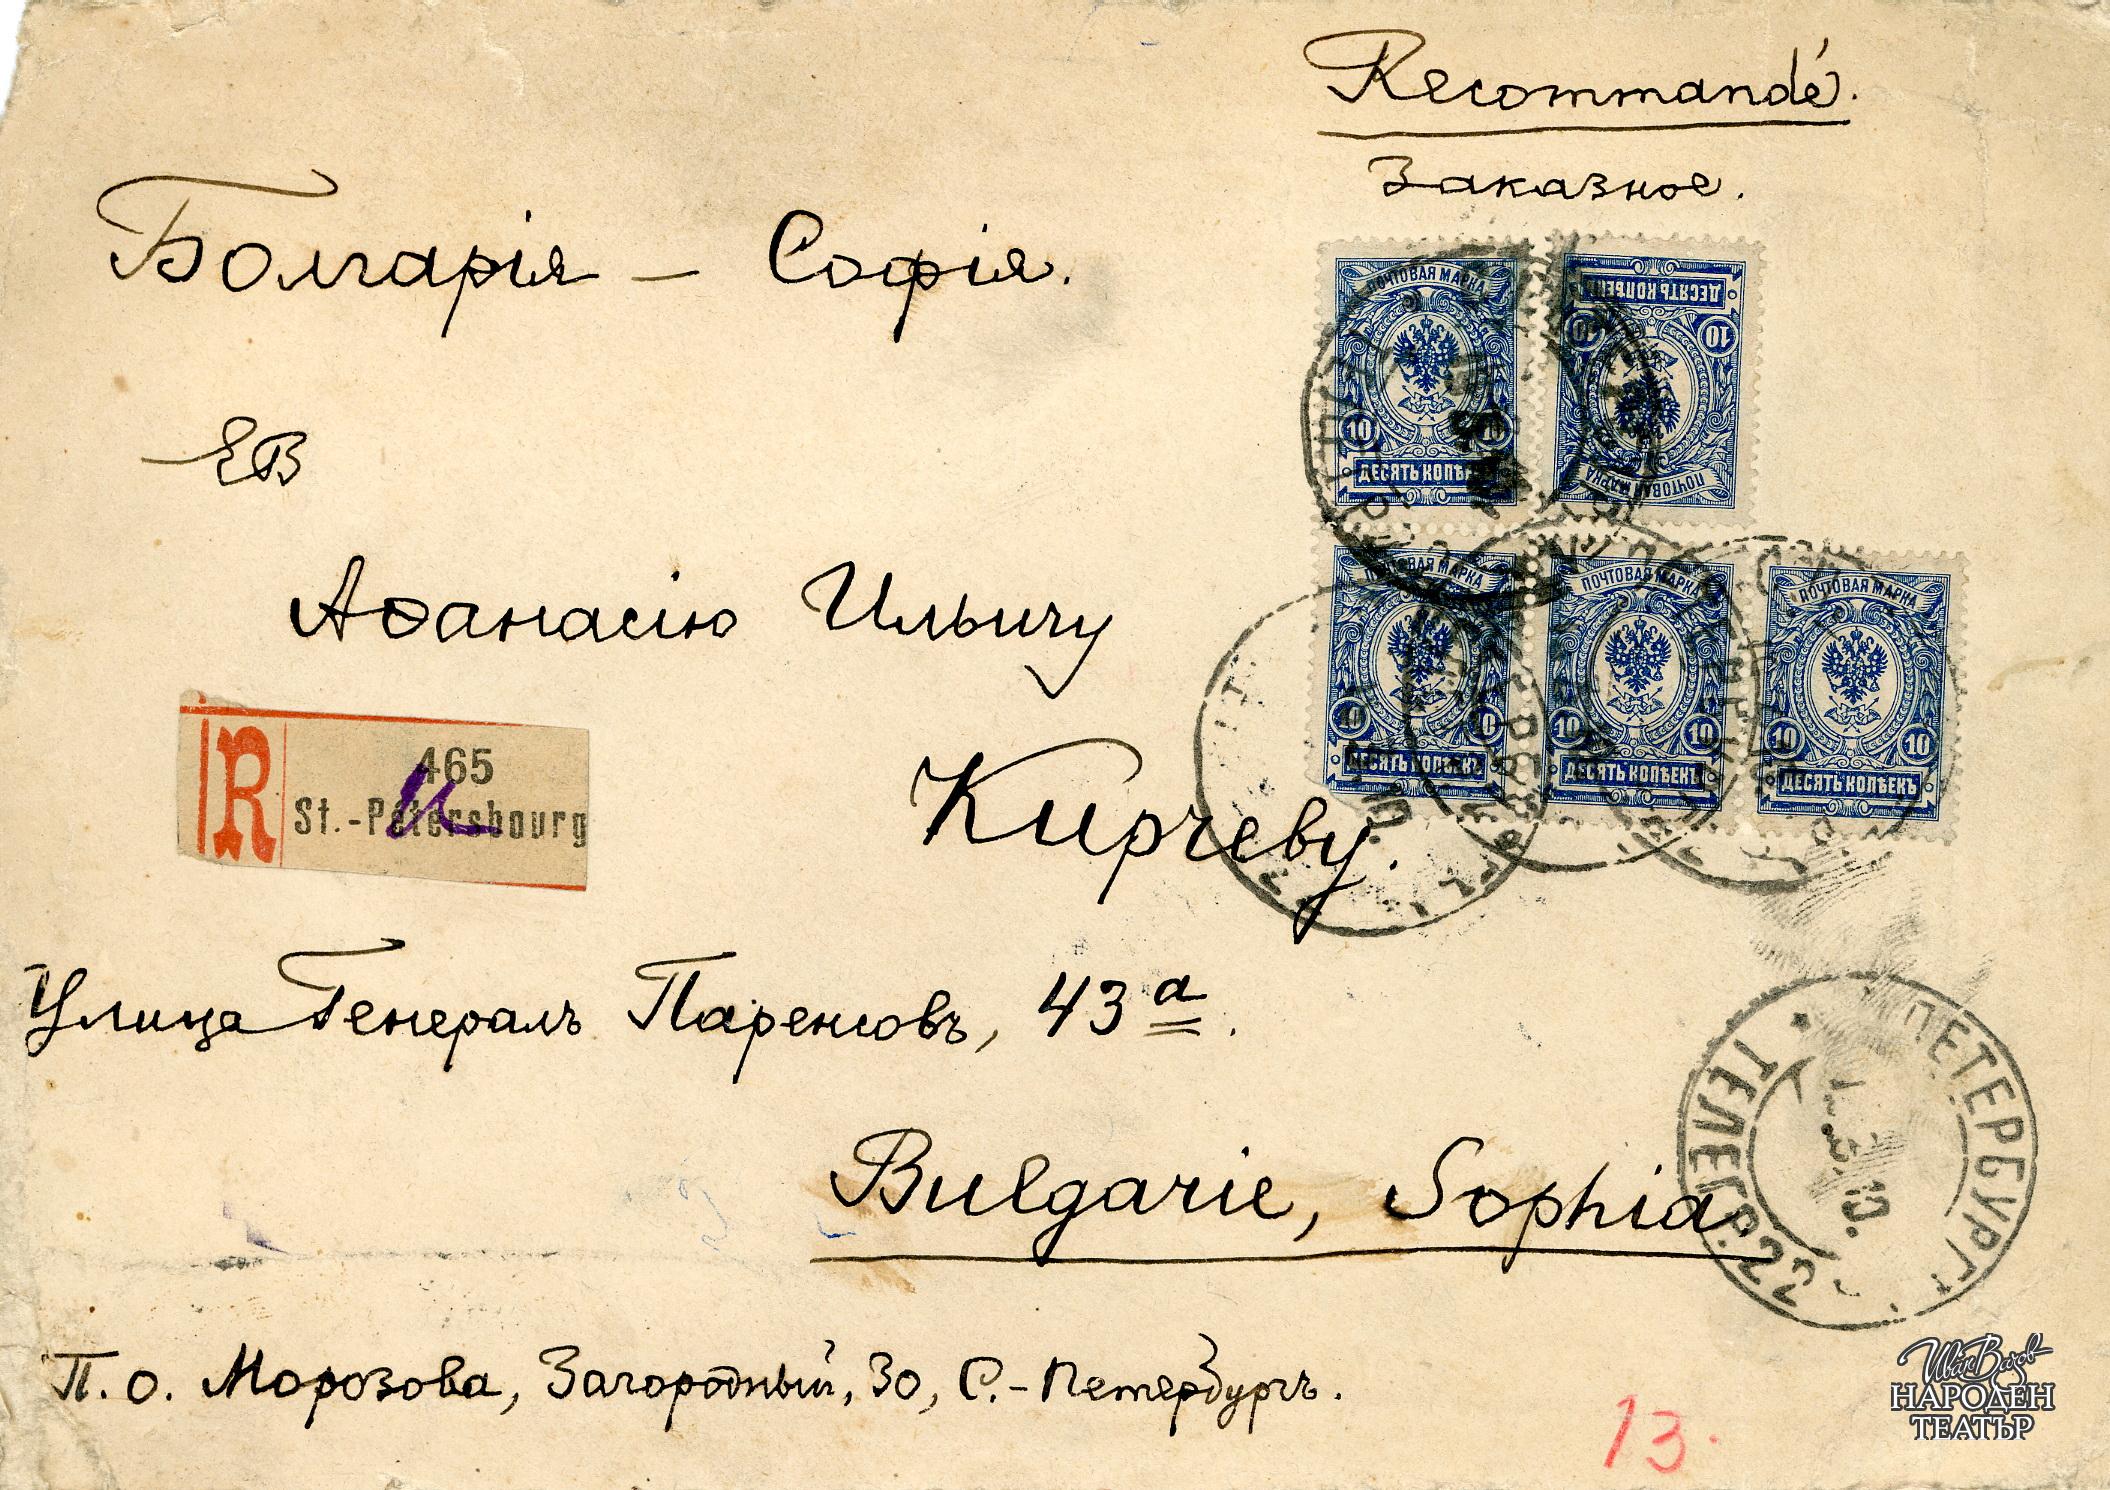 Recommandé.
Заказное.
Болгарія – Софія.
ЕВ
Аѳанасію Ильичу
Кирчеву.
Улица Генералъ Паренсовъ, 43а.
Bulgarie, Sophia
П. о. Морозова, Загородный, 30, С.-Петербургъ.
R
465
St.-Pétersbourg
ПОЧТОВАЯ МАРКА
10
ДЕСЯТЬ КОПѢЕКЪ
ПОЧТОВАЯ МАРКА
10 10
ДЕСЯТЬ КОПѢЕКЪ
ПОЧТОВАЯ МАРКА
10 10
ДЕСЯТЬ КОПѢЕКЪ
ПОЧТОВАЯ МАРКА
10 10
ДЕСЯТЬ КОПѢЕКЪ
ПОЧТОВАЯ МАРКА
10 10
ДЕСЯТЬ КОПѢЕКЪ
ПЕТЕРБУРГЪ
ТЕЛЕГР. 22
13.
Иван Вазов
НАРОДЕН
ТЕАТЪР